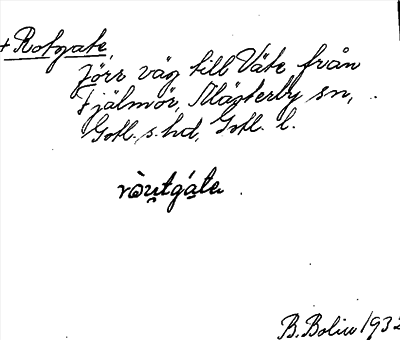 + Rotgate,
Förr väg till Väte från
Fjälmör, Mästerby sn,
Gotl. s. hd, Gotl. l.
ròu̯tgáte
B. Bolin 1932